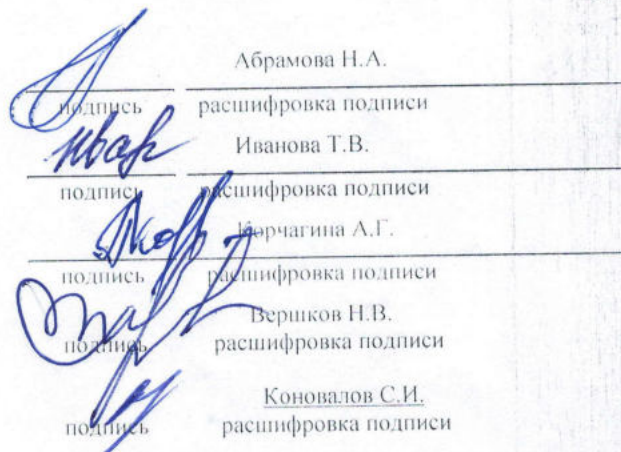 Абрамова Н.А.
подпись расшифровка подписи
Иванова Т.В.
подпись расшифровка подписи
Корчагина А.Г.
подпись расшифровка подписи
Вершков Н.В.
подпись расшифровка подписи
Коновалов С.И.
подпись расшифровка подписи